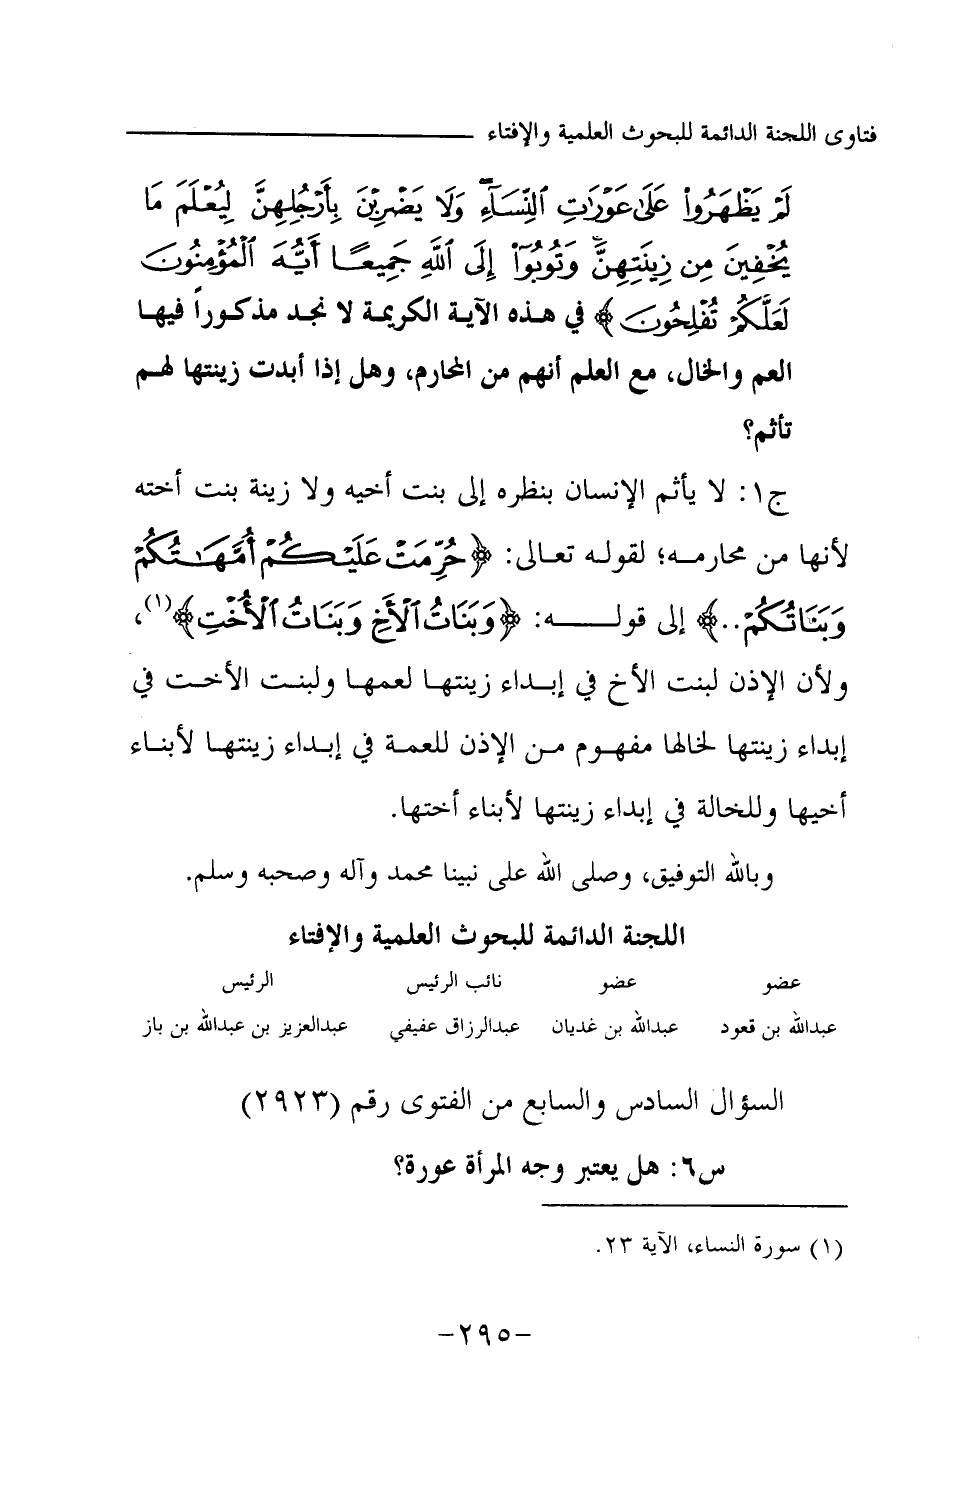 فتاوى اللجنة الدائمة للبحوث العلمية والإفتاء
لَمْ يَظْهَرُوا۟ عَلَىٰ عَوْرَٰتِ ٱلنِّسَآءِ ۖ وَلَا يَضْرِبْنَ بِأَرْجُلِهِنَّ لِيُعْلَمَ مَا
يُخْفِينَ مِن زِينَتِهِنَّ ۚ وَتُوبُوٓا۟ إِلَى ٱللَّهِ جَمِيعًا أَيُّهَ ٱلْمُؤْمِنُونَ
لَعَلَّكُمْ تُفْلِحُونَ﴾ في هذه الآية الكريمة لا نجد مذكوراً فيها
العم والخال، مع العلم أنهم من المحارم، وهل إذا أبدت زينتها لهم
تأثم؟
ج١: لا يأثم الإنسان بنظره إلى بنت أخيه ولا زينة بنت أخته
لأنها من محارمه؛ لقوله تعالى: ﴿حُرِّمَتْ عَلَيْكُمْ أُمَّهَٰتُكُمْ
وَبَنَاتُكُمْ..﴾ إلى قوله: ﴿وَبَنَاتُ ٱلْأَخِ وَبَنَاتُ ٱلْأُخْتِ﴾(١)،
ولأن الإذن لبنت الأخ في إبداء زينتها لعمها ولبنت الأخت في
إبداء زينتها لخالها مفهوم من الإذن للعمة في إبداء زينتها لأبناء
أخيها وللخالة في إبداء زينتها لأبناء أختها.
وبالله التوفيق، وصلى الله على نبينا محمد وآله وصحبه وسلم.
اللجنة الدائمة للبحوث العلمية والإفتاء
عضو عضو نائب الرئيس الرئيس
عبدالله بن قعود عبدالله بن غديان عبدالرزاق عفيفي عبدالعزيز بن عبدالله بن باز
السؤال السادس والسابع من الفتوى رقم (٢٩٢٣)
س٦: هل يعتبر وجه المرأة عورة؟
(١) سورة النساء، الآية ٢٣.
-٢٩٥-